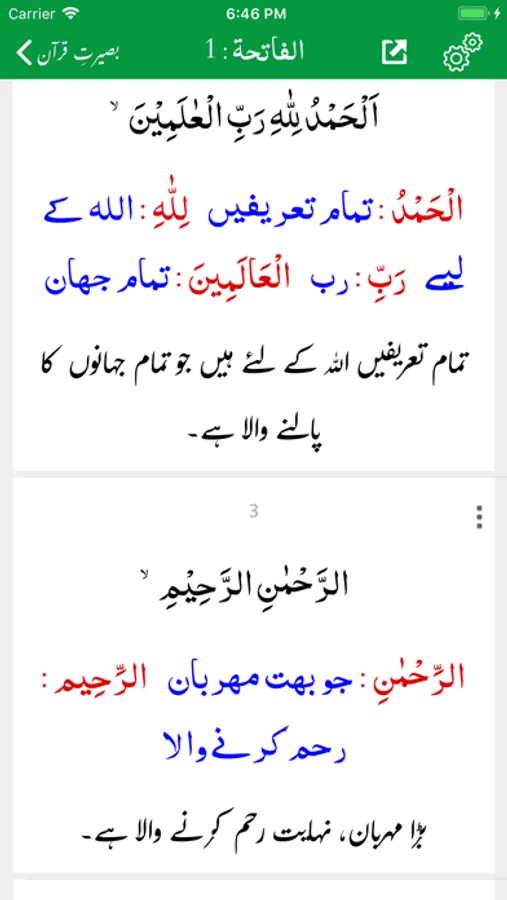 Carrier 6:46 PM
بصیرتِ قرآن الفاتحة : 1
اَلْحَمْدُ لِلّٰهِ رَبِّ الْعٰلَمِيْنَ ۙ
الْحَمْدُ : تمام تعریفیں لِلّٰهِ : الله کے
لیے رَبِّ : رب الْعَالَمِينَ : تمام جهان
تمام تعریفیں اللہ کے لئے ہیں جو تمام جہانوں کا
پالنے والا ہے۔
3
الرَّحْمٰنِ الرَّحِيْمِ ۙ
الرَّحْمٰنِ : جو بهت مهربان الرَّحِيم :
رحم کرنے والا
بڑا مہربان، نہایت رحم کرنے والا ہے۔